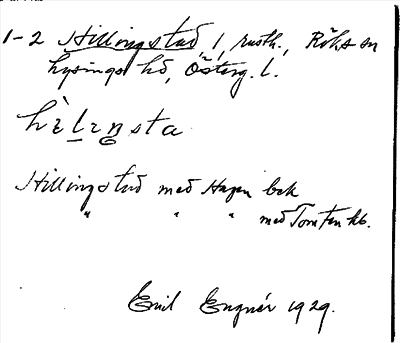 1-2 Hillingstad 1, rusth., Röks sn
Lysings hd, Österg. l.
hìlıŋsta
Hillingstad med Hagen beb.
" " " med Tomten lht.
Emil Engnér 1929.